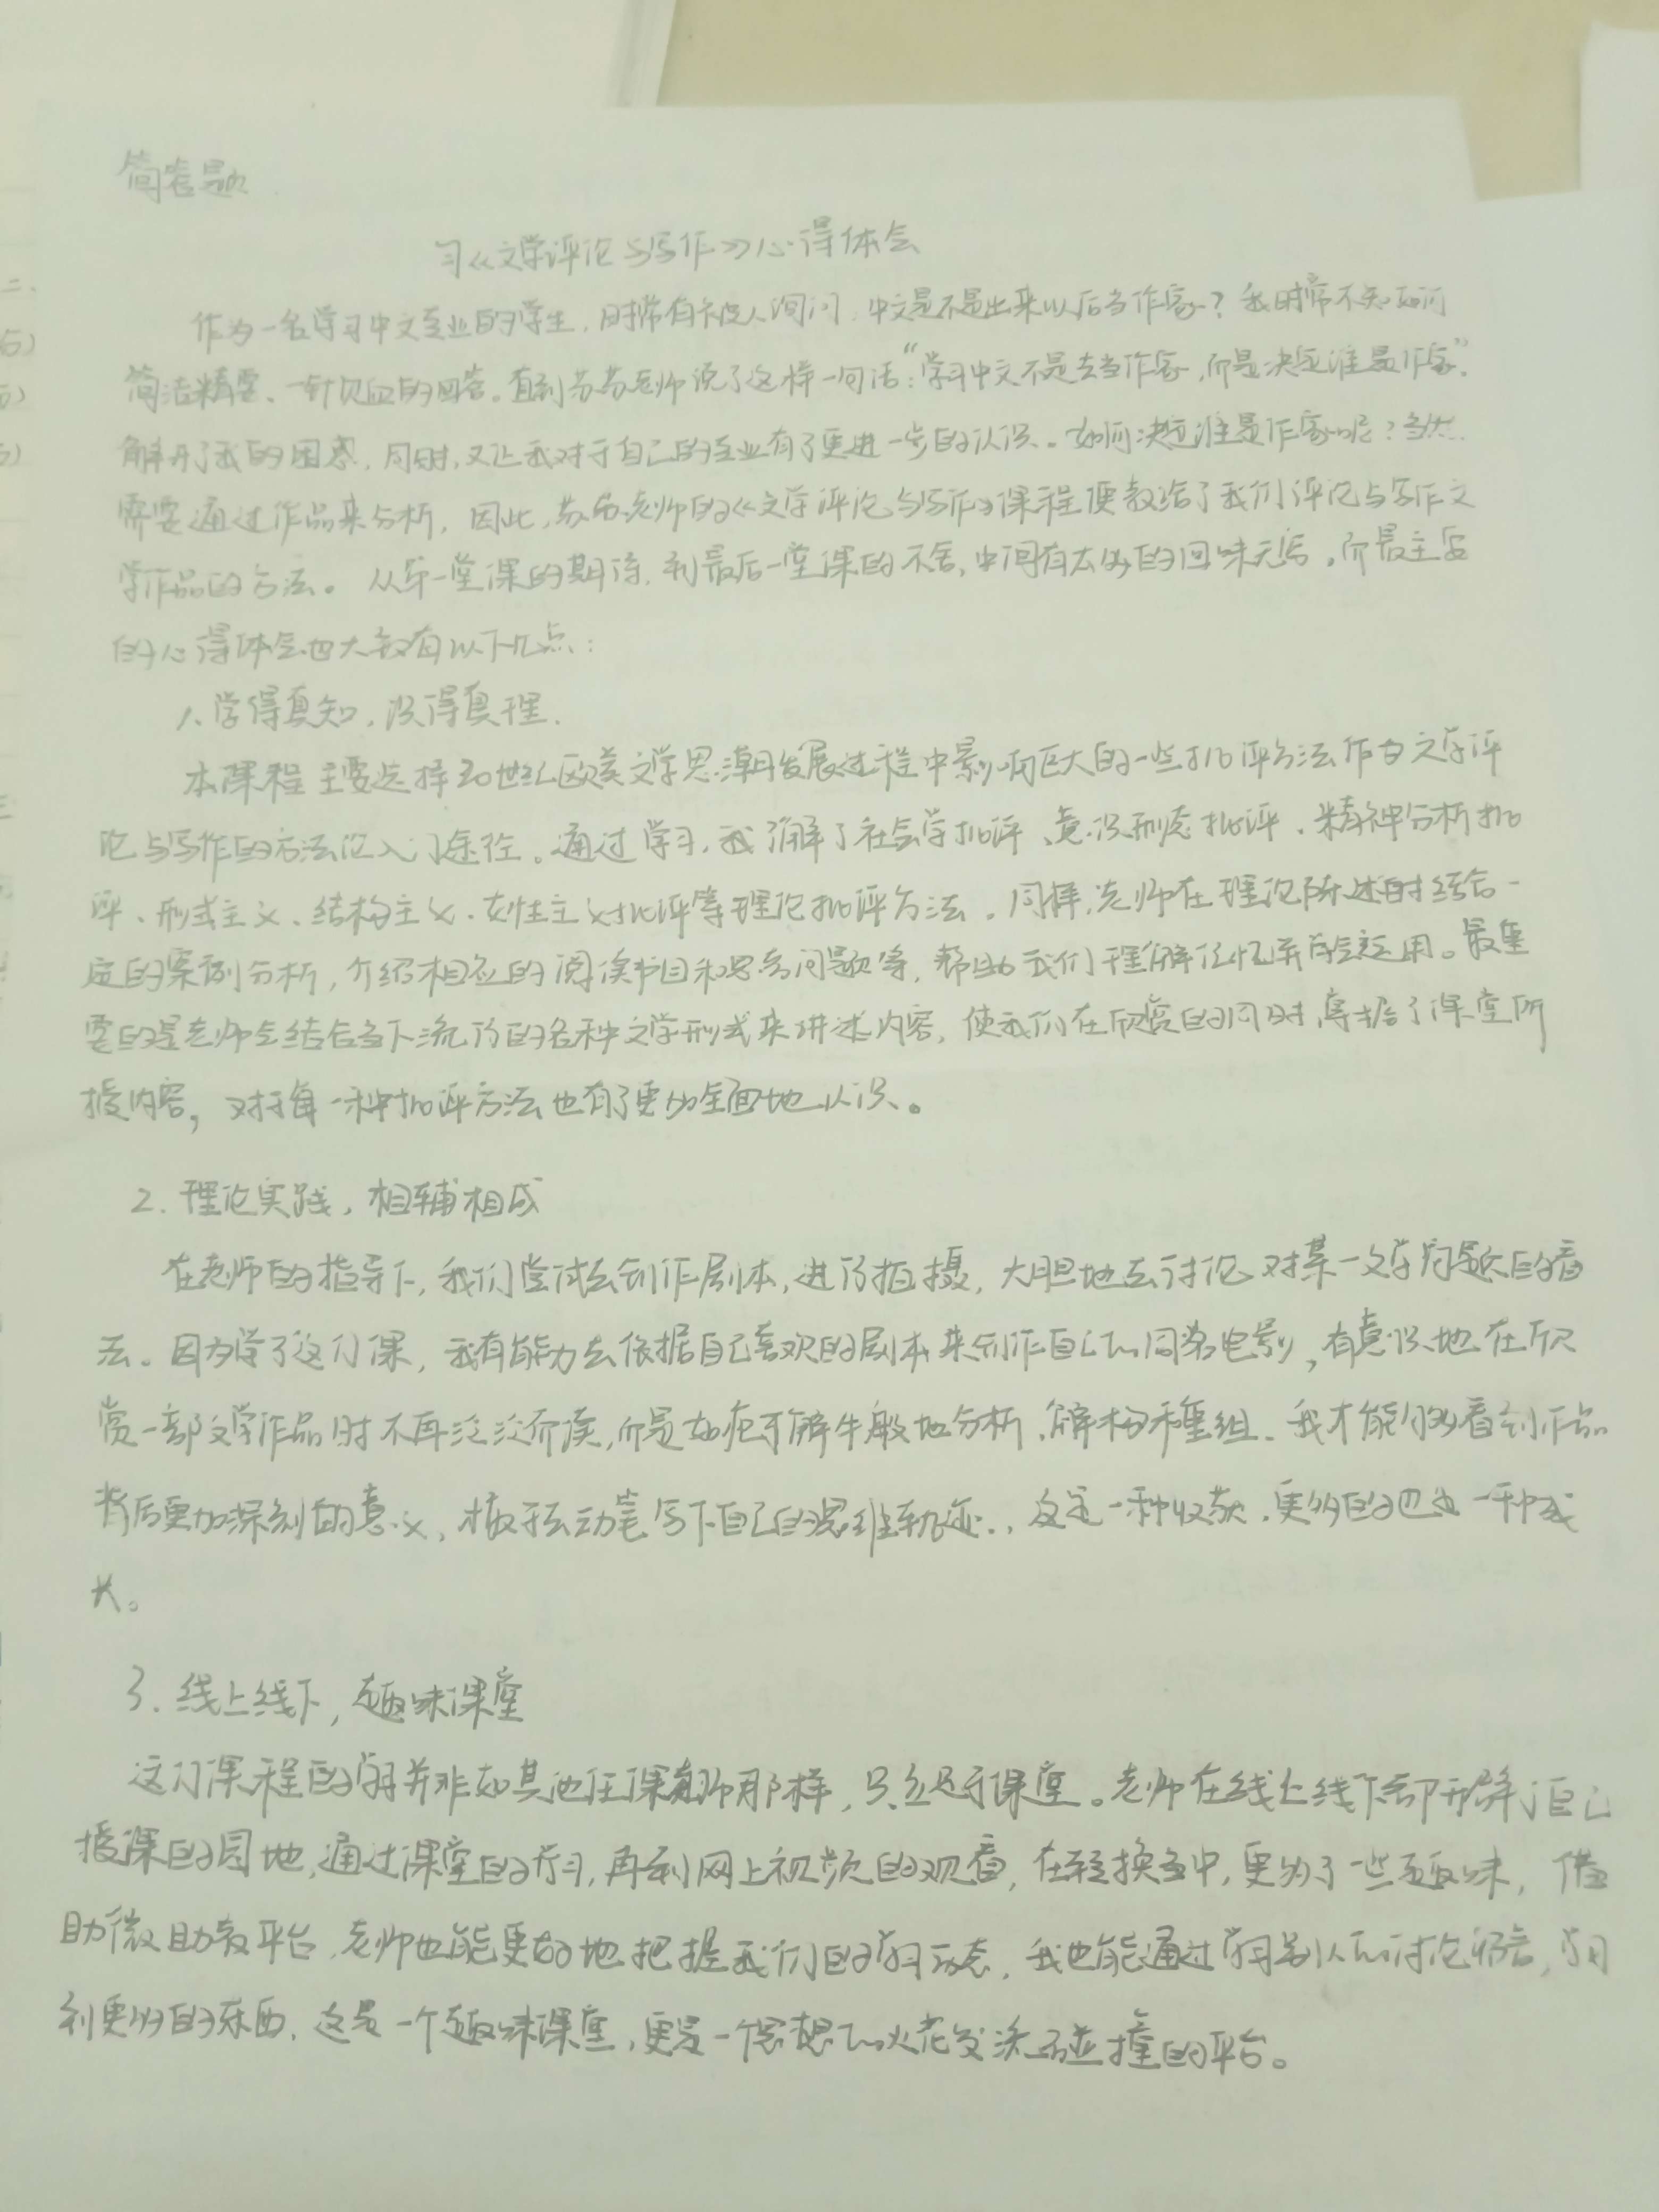 简答题
习《文学评论与写作》心得体会
作为一名学习中文专业的学生，时常有被人问门：中文是不是出来以后当作家？我时常不知如何
简洁精要、一针见血的回答。直到苏苏老师说了这样一句话：“学习中文不是去当作家，而是决定谁是作家”，
解开了我的困惑，同时，又让我对于自己的专业有了更进一步的认识。如何决定谁是作家呢？当然
需要通过作品来分析，因此，苏苏老师的《文学评论与写作》课程便教给了我们评论与写作文
学作品的方法。从第一堂课的期待，到最后一堂课的不舍，中间有太多的回味无穷。而最主要
的心得体会也大致有以下几点：
1、学得真知，识得真理.
本课程主要选择20世纪欧美文学思潮发展过程中影响巨大的一些批评方法作为文学评
论与写作的方法论入门途径。通过学习，我了解了社会学批评、意识形态批评、精神分析批
评、形式主义、结构主义、女性主义批评等理论批评方法。同样，老师在理论陈述时结合一
定的案例分析，介绍相应的阅读书目和思考问题等，帮助我们理解记忆并学会运用。最重
要的是老师会结合当下流行的各种文学形式来讲述内容，使我们在欣赏的同时，掌握了课堂所
授内容，对于每一种批评方法也有了更为全面地认识。
2. 理论实践，相辅相成
在老师的指导下，我们尝试去创作剧本，进行拍摄，大胆地去讨论对某一文学问题的看
法。因为学了这门课，我有能力去依据自己喜欢的剧本来创作自己的同名电影，有意识地在欣
赏一部文学作品时不再泛泛而读，而是如庖丁解牛般地分析、解构和重组。我才能够看到作品
背后更加深刻的意义，敢于去动笔写下自己的思维轨迹.，这是一种收获，更多的也是一种成
长。
3. 线上线下，趣味课堂
这门课程的学习并非如其他任课老师那样，只立足于课堂。老师在线上线下都开辟了自己
授课的园地，通过课堂的学习，再到网上视频的观看，在转换之中，更多了一些趣味，借
助微助教平台，老师也能更好地把握我们的学习动态，我也能通过学习别人的讨论留言，学习
到更多的东西，这是一个趣味课堂，更是一个思想的火花交流与碰撞的平台。